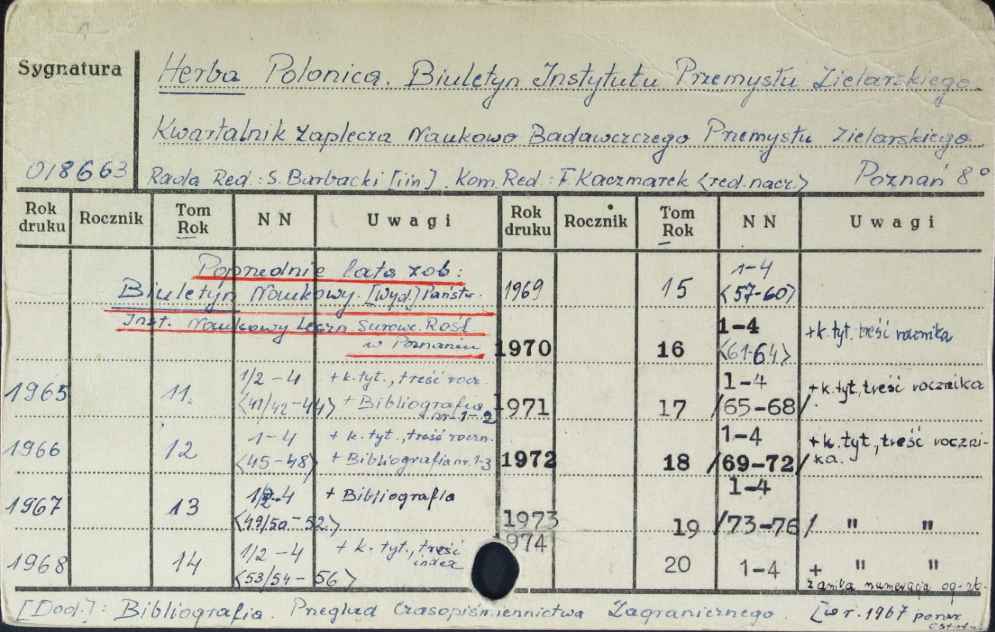 Sygnatura
Herba Polonica. Biuletyn Instytutu Przemysłu Zielarskiego.
Kwartalnik Zaplecza Naukowo Badawczczego Przemysłu Zielarskiego
018663
Rada Red.: S. Barbacki [i in]. Kom. Red.: F. Kaczmarek <red. nacz.> Poznań 8°
Rok druku Rocznik Tom Rok NN Uwagi Rok druku Rocznik Tom Rok NN Uwagi
Poprzednie lata zob:
Biuletyn Naukowy. [Wyd.] Państw.
Inst. Naukowy Leczn. Surow. Rośl.
w Poznaniu
1965 11. 1/2-4 <41/42-44> + k. tyt., treść rocz. + Bibliografia nr 1-2
1966 12 1-4 <45-48> + k. tyt., treść roczn. + Bibliografia nr. 1-3
1967 13 1/2-4 <49/50-52> + Bibliografia
1968 14 1/2-4 <53/54-56> + k. tyt., treść index
1969 15 1-4 <57-60>
1970 16 1-4 <61-64> + k. tyt. treść rocznika
1971 17 1-4 /65-68/ + k. tyt, treść rocznika
1972 18 1-4 /69-72/ + k. tyt., treść rocznika.
1973 19 1-4 /73-76/ " "
1974 20 1-4 + " "
zanika numeracja og-
[Dod.]: Bibliografia. Przegląd Czasopiśmiennictwa Zagranicznego. [w r. 1967